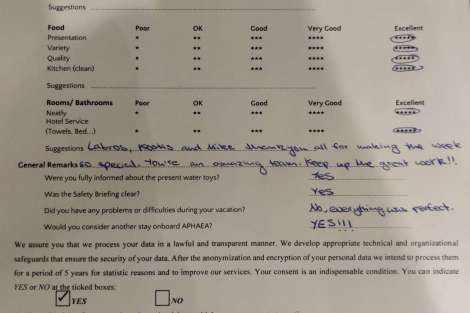 Suggestions
Food Poor OK Good Very Good Excellent
Presentation * ** *** **** *****
Variety * ** *** **** *****
Quality * ** *** **** *****
Kitchen (clean) * ** *** **** *****
Suggestions
Rooms/ Bathrooms Poor OK Good Very Good Excellent
Neatly * ** *** **** *****
Hotel Service
(Towels, Bed...) * ** *** **** *****
Suggestions Labros, Kostis and Mike thank you all for making the week
General Remarks so special. You're an amazing team. Keep up the great work!!
Were you fully informed about the present water toys? Yes
Was the Safety Briefing clear? Yes
Did you have any problems or difficulties during your vacation? No, everything was perfect.
Would you consider another stay onboard APHAEA? YES!!!
We assure you that we process your data in a lawful and transparent manner. We develop appropriate technical and organizational
safeguards that ensure the security of your data. After the anonymization and encryption of your personal data we intend to process them
for a period of 5 years for statistic reasons and to improve our services. Your consent is an indispensable condition. You can indicate
YES or NO at the ticked boxes.
YES NO